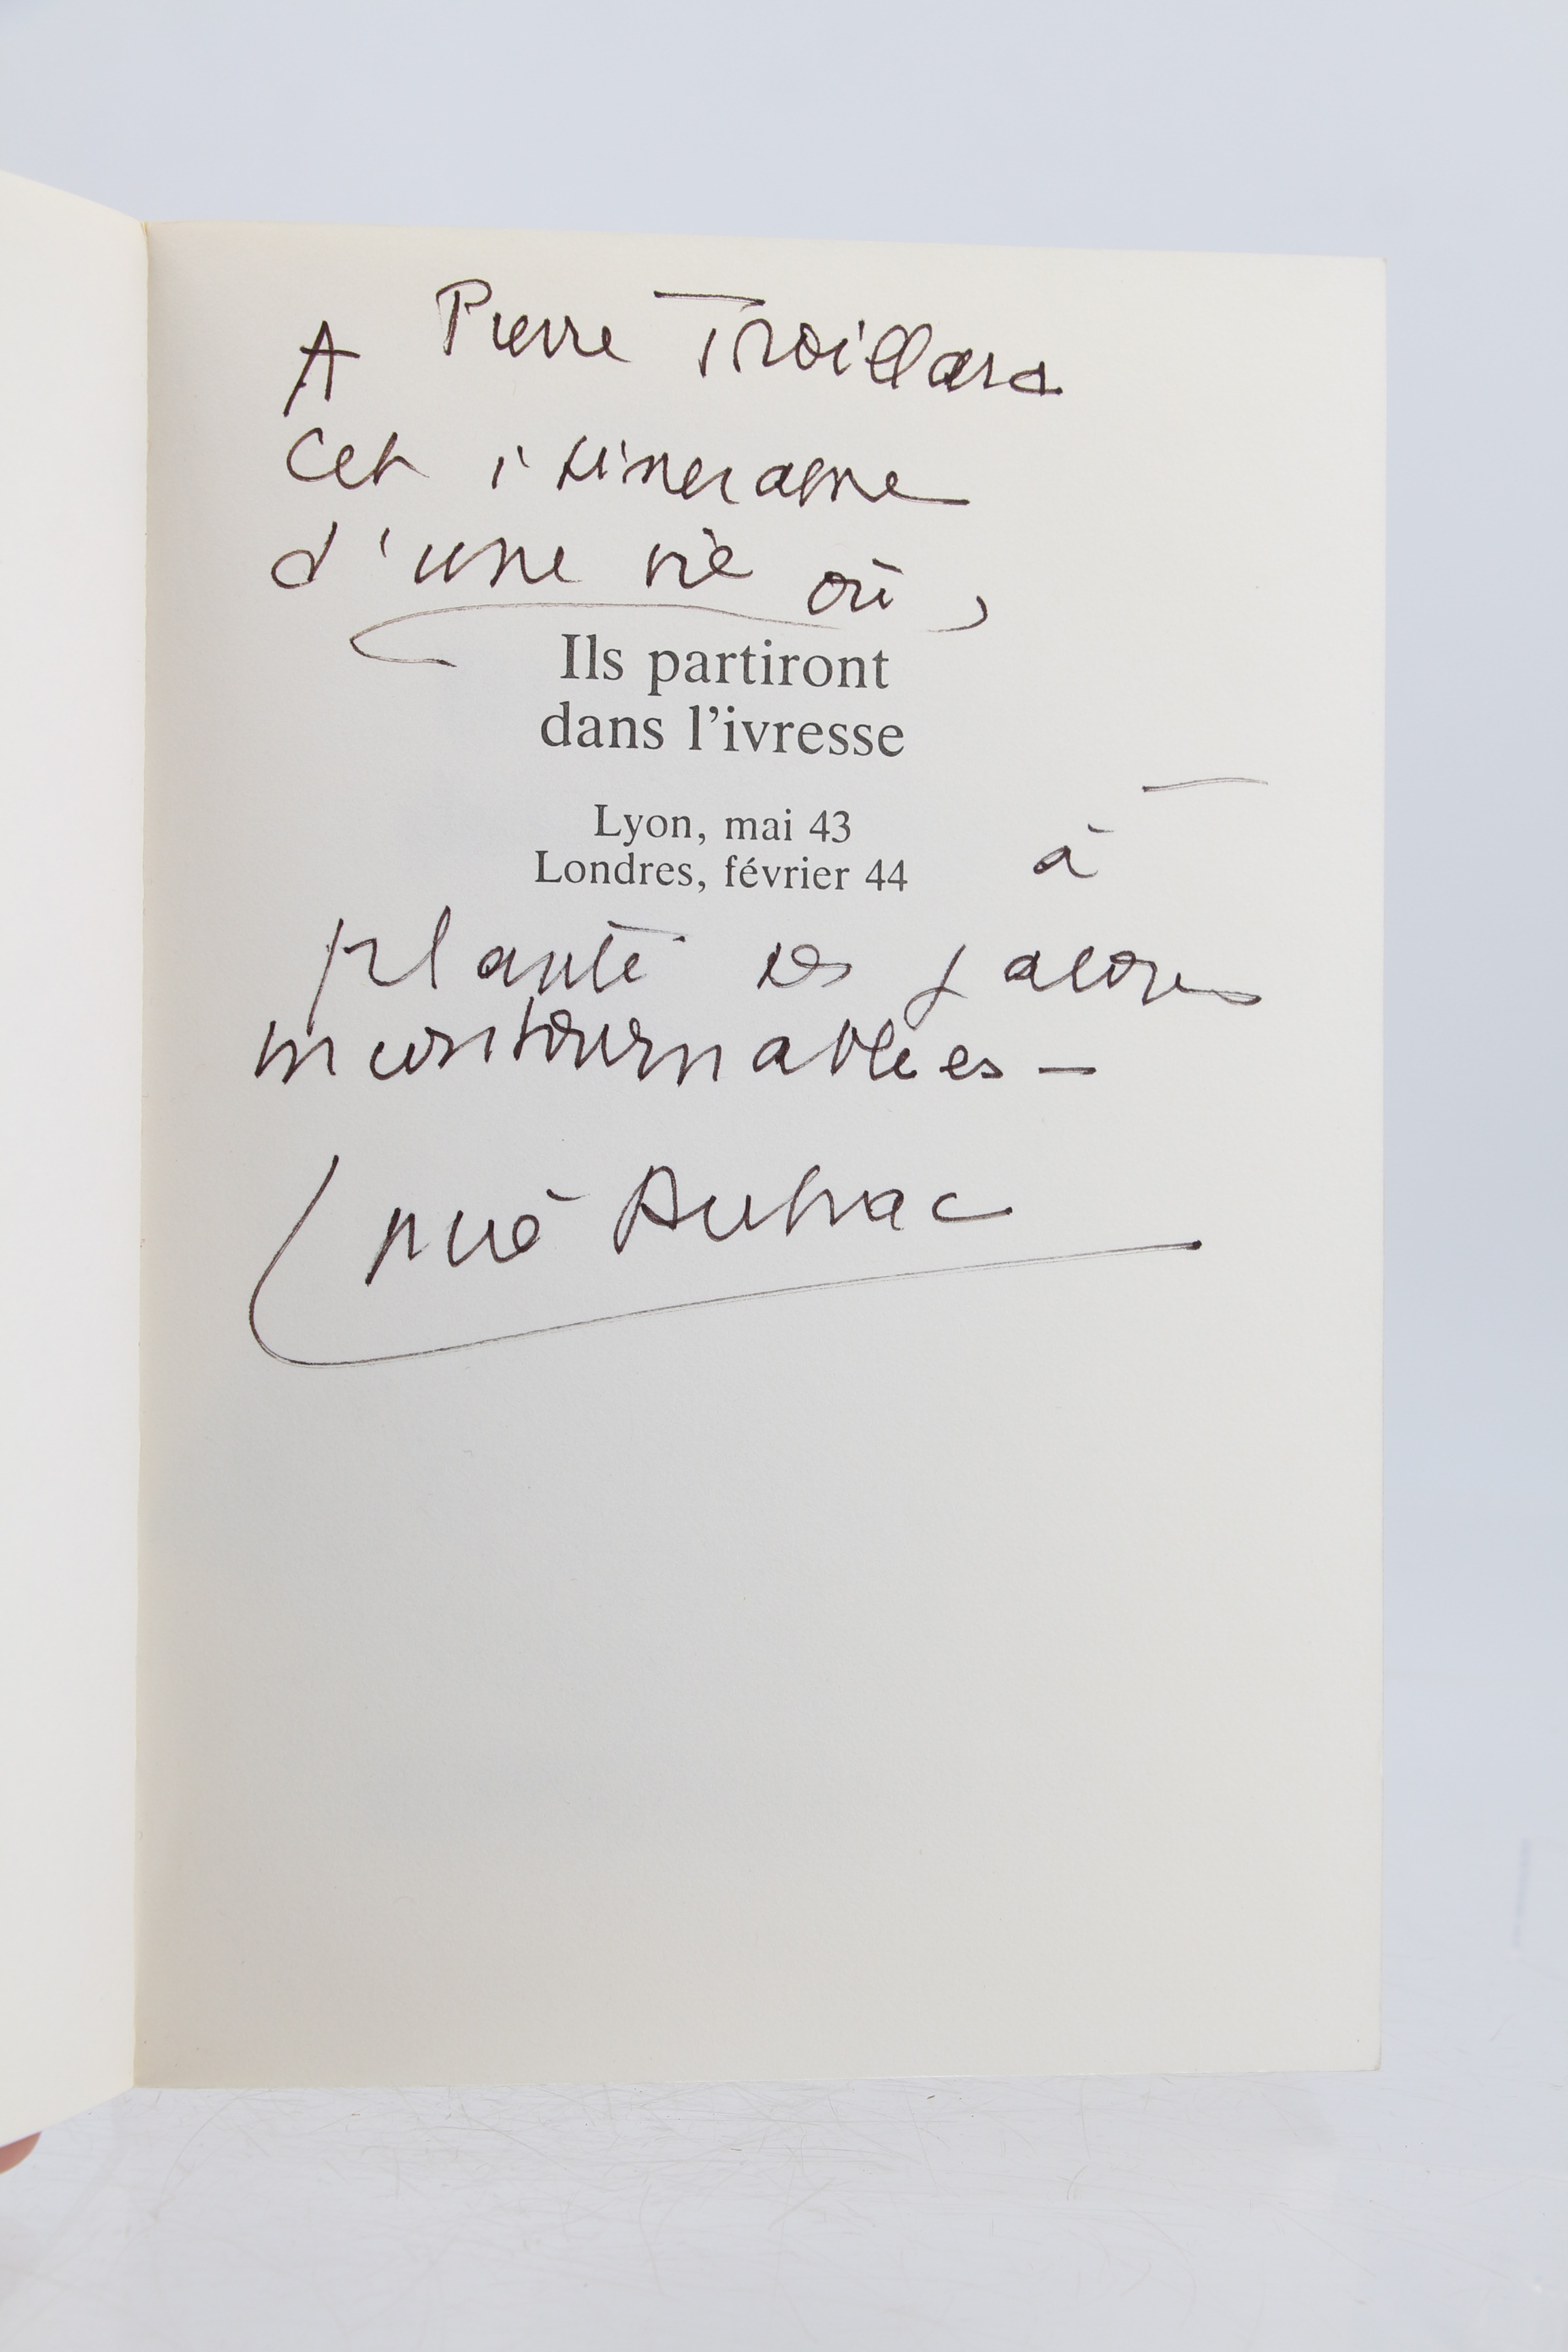 A Pierre Troillard
Cet itineraire
d'une vie où,
Ils partiront
dans l'ivresse
Lyon, mai 43
Londres, février 44 à
planté des jalons
incontournables —
Lucie Aubrac